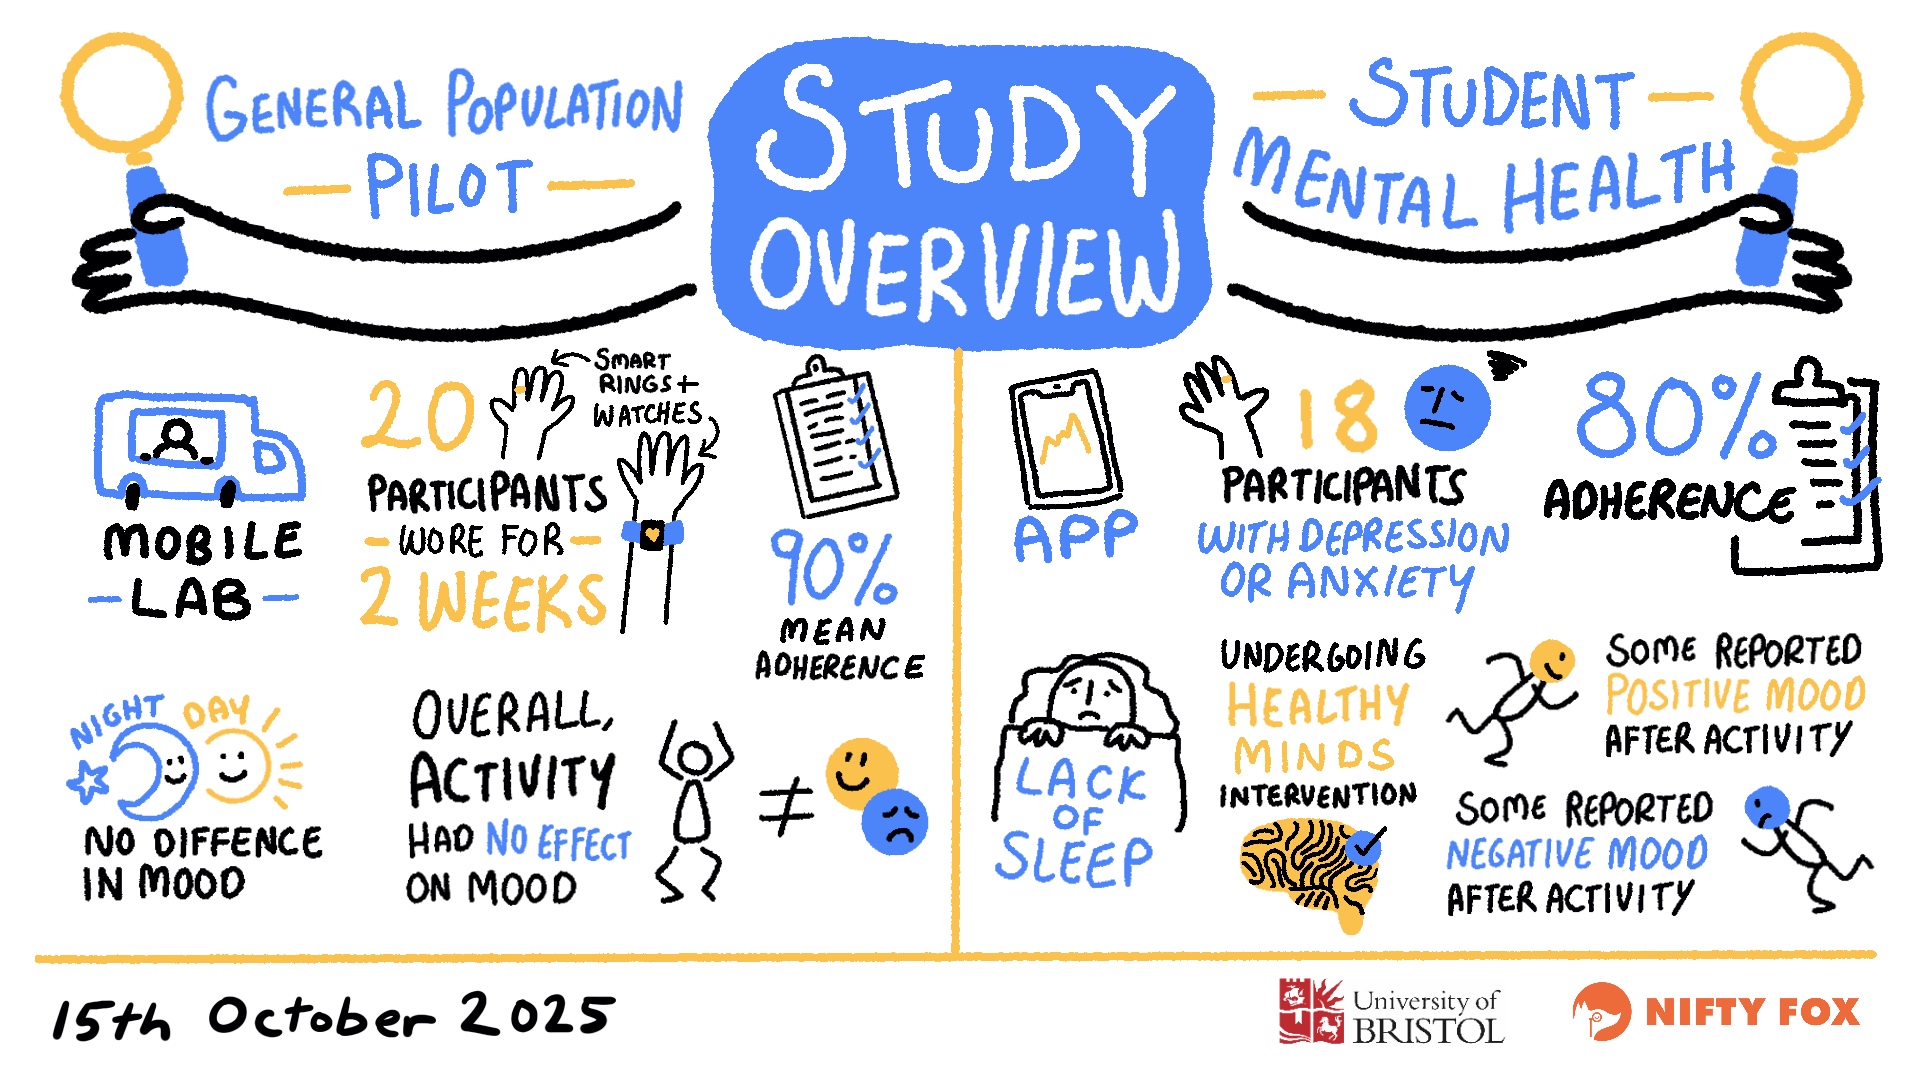 STUDY
OVERVIEW
GENERAL POPULATION
PILOT
MOBILE
LAB
20
PARTICIPANTS
WORE FOR
2 WEEKS
SMART
RINGS+
WATCHES
90%
MEAN
ADHERENCE
NIGHT DAY
NO DIFFENCE
IN MOOD
OVERALL,
ACTIVITY
HAD NO EFFECT
ON MOOD
≠
STUDENT
MENTAL HEALTH
APP
18
PARTICIPANTS
WITH DEPRESSION
OR ANXIETY
80%
ADHERENCE
LACK
OF
SLEEP
UNDERGOING
HEALTHY
MINDS
INTERVENTION
SOME REPORTED
POSITIVE MOOD
AFTER ACTIVITY
SOME REPORTED
NEGATIVE MOOD
AFTER ACTIVITY
15th October 2025
University of
BRISTOL
NIFTY FOX